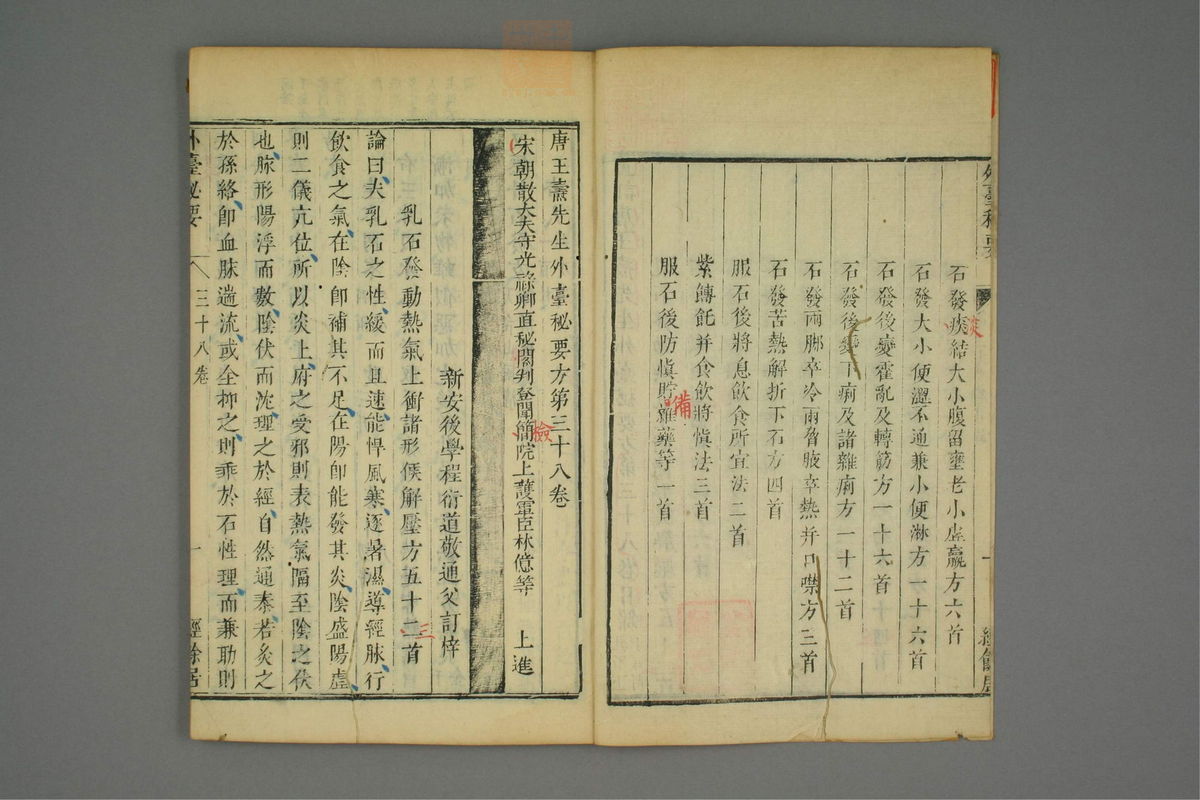 外臺秘要
一
經餘居
石發痰結大小腹留壅老小虛羸方六首
石發大小便澀不通兼小便淋方一十六首
石發後變霍亂及轉筋方一十六首
石發後變下痢及諸雜痢方一十二首
石發兩脚卒冷兩脅腋卒熱并口噤方三首
石發苦熱解折下石方四首
服石後將息飲食所宜法二首
紫餺飥并食飲將慎法三首
服石後防慎貯雜藥等一首
備
唐王燾先生外臺秘要方第三十八卷
宋朝散大夫守光祿卿直秘閣判登聞簡院上護軍臣林億等 上進
檢
新安後學程衍道敬通父訂梓
乳石發動熱氣上衝諸形候解壓方五十二首
三
論曰夫乳石之性緩而且速能悍風寒逐暑濕導經脉行
飲食之氣在陰卽補其不足在陽卽能發其炎陰盛陽虛
則二儀亢位所以炎上府之受邪則表熱氣隔至陰之伏
也脉形陽浮而數陰伏而沈理之於經自然通泰若灸之
於孫絡卽血脉遄流或全抑之則乖於石性理而兼助則
外臺秘要
三十八卷
一
經餘居